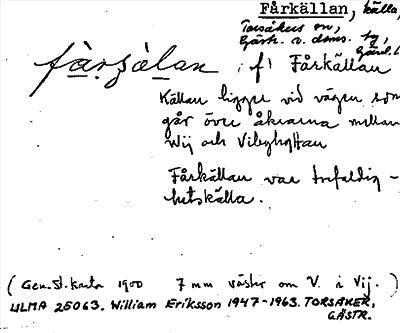 Fårkällan, källa,
Torsåkers sn,
Gästr. ö. doms. tg,
Gävl. l
fɑ̀rʒälan ; f! Fårkällan
Källan ligger vid vägen som
går över åkrarna mellan
Wij och Vibyhyttan
Fårkällan var trefaldig-
hetskälla.
(Gen. St. karta 1900 7 mm väster om V. i Vij.)
ULMA 25063. William Eriksson 1947-1963. TORSÅKER,
GÄSTR.